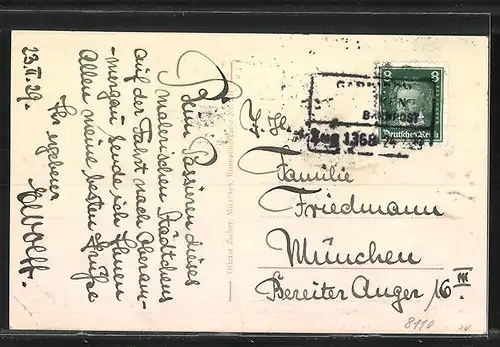 23.II.29.
Beim Passieren dieses
malerischen Städtchens
auf der Fahrt nach Oberam-
mergau sende ich Ihnen
Allen meine besten Grüße
Ihr ergebener
EWolff.
8
Deutsches Reich
Bahnpost
Zug 1368
Familie
Friedmann
München
Bereiter Anger 16 III
8110